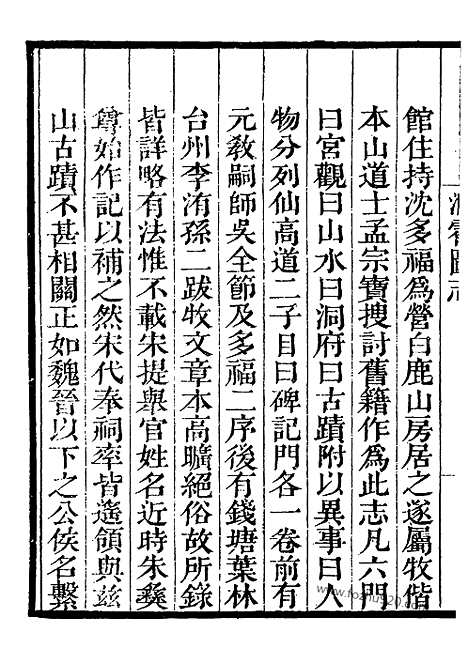 洞霄圖志
館住持沈多福爲營白鹿山房居之遂屬牧偕
本山道士孟宗寶搜討舊籍作爲此志凡六門
曰宮觀曰山水曰洞府曰古蹟附以異事曰人
物分列仙高道二子目曰碑記門各一卷前有
元敎嗣師吳全節及多福二序後有錢塘葉林
台州李洧孫二跋牧文章本高曠絕俗故所錄
皆詳略有法惟不載宋提舉官姓名近時朱彝
尊始作記以補之然宋代奉祠率皆遙領與茲
山古蹟不甚相關正如魏晉以下之公侯名繫
www.fozhu920.com